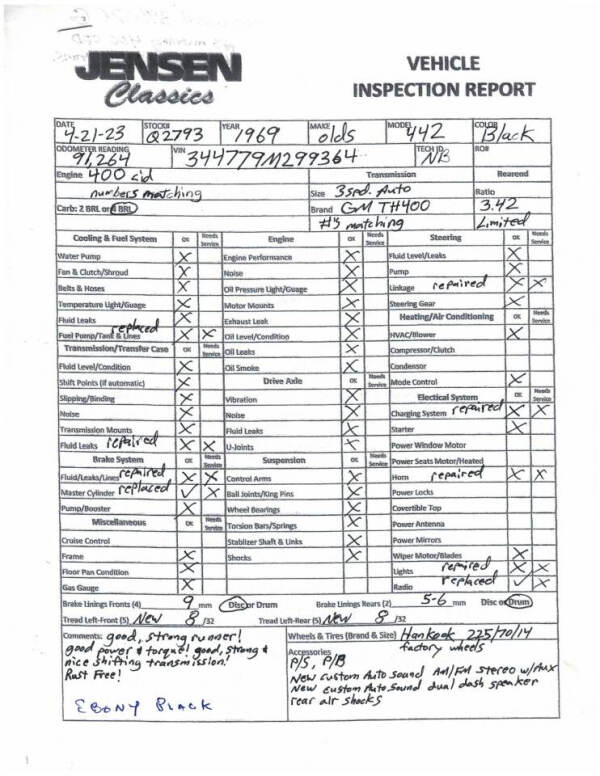 JENSEN
Classics
VEHICLE
INSPECTION REPORT
DATE 4-21-23 STOCK# Q2793 YEAR 1969 MAKE olds MODEL 442 COLOR Black
ODOMETER READING 91,264 VIN 344779M299364 TECH ID NB RO#
Engine 400 cid Transmission Rearend
numbers matching Size 3spd. Auto Ratio
Carb: 2 BRL or 4 BRL Brand GM TH400 3.42
#'s matching Limited
Cooling & Fuel System OK Needs Service Engine OK Needs Service Steering OK Needs Service
Water Pump X Engine Performance X Fluid Level/Leaks X
Fan & Clutch/Shroud X Noise X Pump X
Belts & Hoses X Oil Pressure Light/Guage X Linkage repaired X X
Temperature Light/Guage X Motor Mounts X Steering Gear X
Fluid Leaks X Exhaust Leak X Heating/Air Conditioning OK Needs Service
Fuel Pump/Tank & Lines replaced X X Oil Level/Condition X HVAC/Blower X
Transmission/Transfer Case OK Needs Service Oil Leaks X Compressor/Clutch
Fluid Level/Condition X Oil Smoke X Condensor
Shift Points (if automatic) X Drive Axle OK Needs Service Mode Control X
Slipping/Binding X Vibration X Electrical System OK Needs Service
Noise X Noise X Charging System repaired X X
Transmission Mounts X Fluid Leaks X Starter X
Fluid Leaks repaired X X U-Joints X Power Window Motor
Brake System OK Needs Service Suspension OK Needs Service Power Seats Motor/Heated
Fluid/Leaks/Lines repaired X X Control Arms X Horn repaired X X
Master Cylinder replaced ✓ X Ball Joints/King Pins X Power Locks
Pump/Booster X Wheel Bearings X Covertible Top
Miscellaneous OK Needs Service Torsion Bars/Springs X Power Antenna
Cruise Control Stablizer Shaft & Links X Power Mirrors
Frame X Shocks X Wiper Motor/Blades X
Floor Pan Condition X Lights repaired X X
Gas Gauge X Radio replaced ✓ X
Brake Linings Fronts (4) 9 mm Disc or Drum Brake Linings Rears (2) 5-6 mm Disc or Drum
Tread Left-Front (5) New 8 /32 Tread Left-Rear (5) New 8 /32
Comments: good, strong runner! Wheels & Tires (Brand & Size) Hankook 225/70/14
good power & torque! good, strong & factory wheels
nice shifting transmission! Accessories
Rust Free! P/S, P/B
New custom Auto sound AM/FM stereo w/Aux
New custom Auto Sound dual dash speaker
rear air shocks
EBONY BLACK